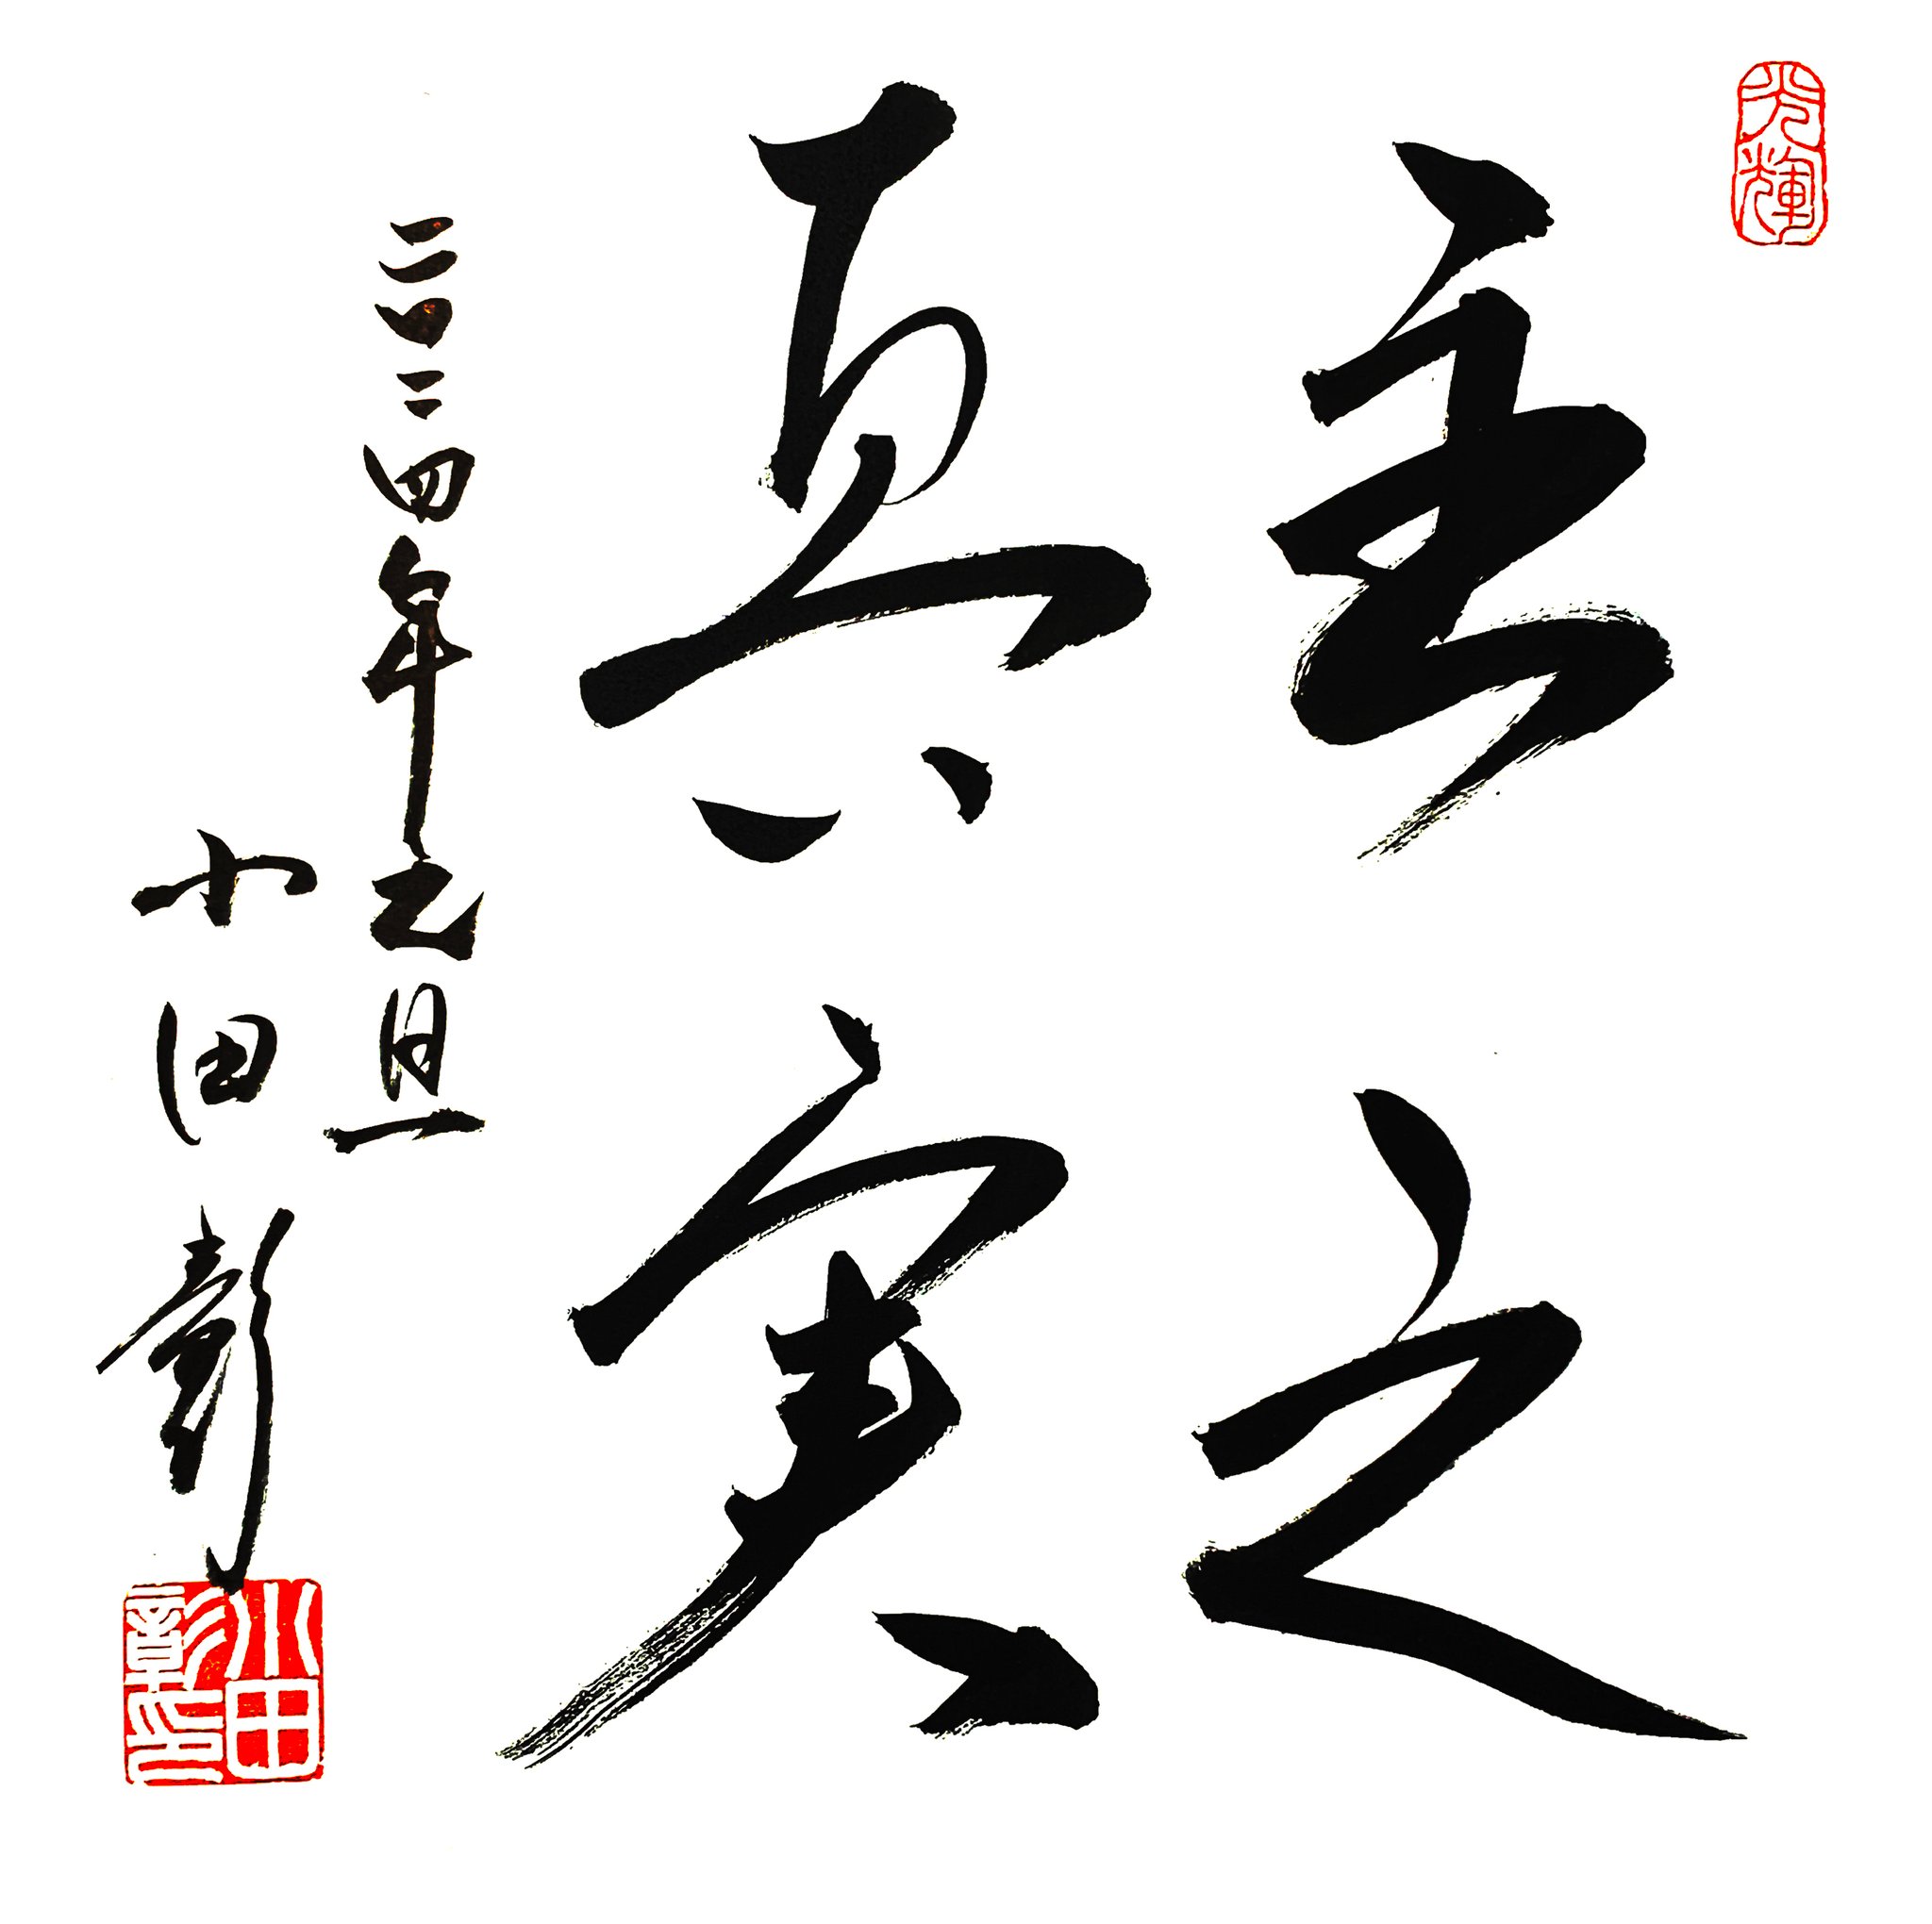 光輝
主之
真実
二〇二四年元旦
小田彰
小田
彰印